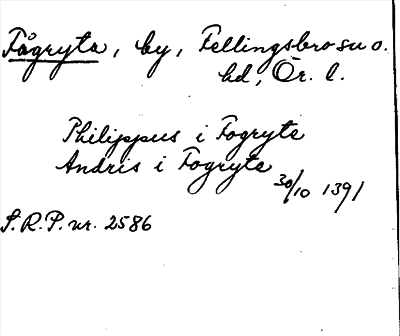 Fågryta, by, Fellingsbro sn o.
hd, Ör. l.
Philippus i Fogryte
Andris i Fogryte
30/10 1391
S.R.P. nr. 2586